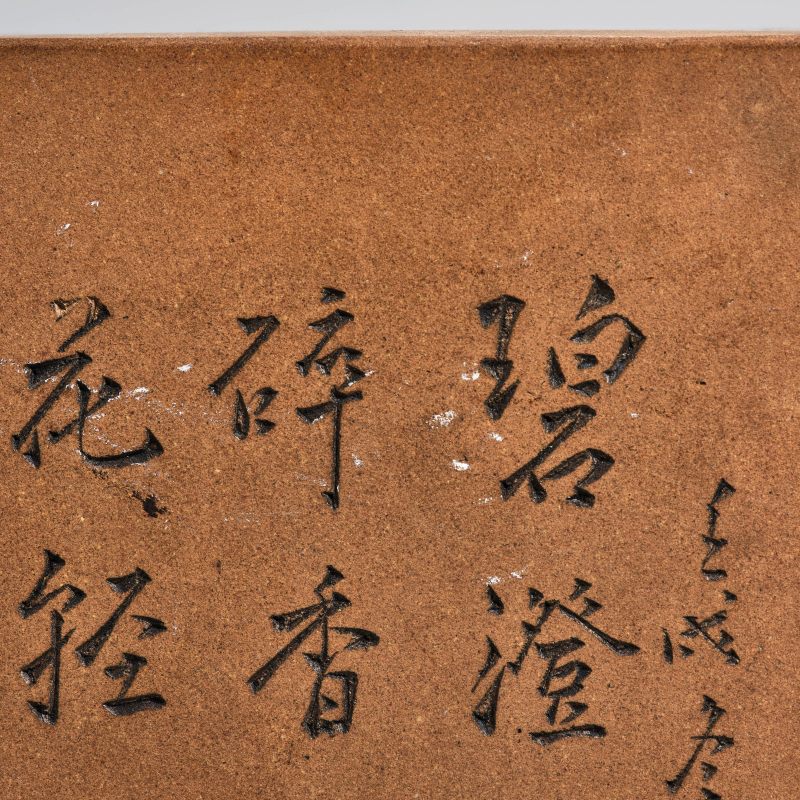 壬戌冬
碧澄
碎香
花轻